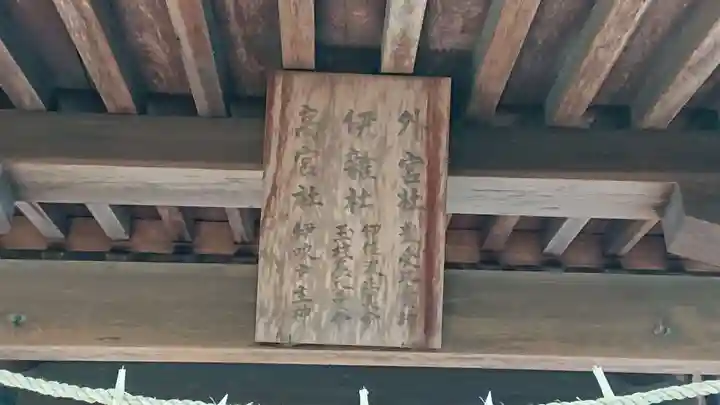 外宮社 豊受比売神
伊雑社 伊佐波登美命
玉柱屋姫命
高宮社 伊吹戸主神